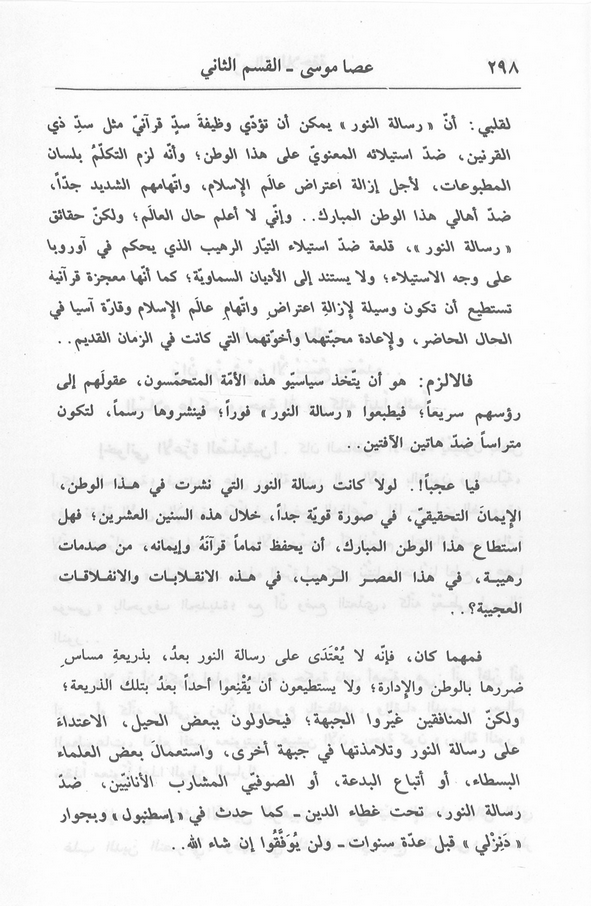 ٢٩٨ عصا موسى ـ القسم الثاني
لقلبي: أنّ « رسالة النور » يمكن أن تؤدّي وظيفةَ سدٍّ قرآنيّ مثل سدِّ ذي
القرنين، ضدّ استيلائه المعنويّ على هذا الوطن؛ وأنّه لزم التكلّمُ بلسان
المطبوعات، لأجل إزالة اعتراض عالَم الإسلام، واتّهامهم الشديد جدّاً،
ضدّ أهالي هذا الوطن المبارك.. وإنّي لا أعلم حال العالَم؛ ولكنّ حقائق
« رسالة النور »، قلعة ضدّ استيلاء التيّار الرهيب الذي يحكم في آوروبا
على وجه الاستيلاء؛ ولا يستند إلى الأديان السماويّة؛ كما أنّها معجزة قرآنية
تستطيع أن تكون وسيلة لإزالةِ اعتراضِ واتّهامِ عالَمِ الإسلام وقارّة آسيا في
الحال الحاضر، ولإعادة محبّتهما وأخوّتهما التي كانت في الزمان القديم..
فالالزم: هو أن يتّخذ سياسيّو هذه الأمّة المتحمّسون، عقولَهم إلى
رؤسهم سريعاً؛ فيطبعوا « رسالة النور » فوراً؛ فينشروها رسماً، لتكون
متراساً ضدّ هاتين الآفتين..
فيا عجباً!. لولا كانت رسالة النور التي نشرت في هذا الوطن،
الإيمانَ التحقيقيّ، في صورة قويّة جداً، خلال هذه السنين العشرين؛ فهل
استطاع هذا الوطن المبارك، أن يحفظ تماماً قرآنَهُ وإيمانه، من صدمات
رهيبة، في هذا العصر الرهيب، في هذه الانقلابات والانفلاقات
العجيبة؟..
فمهما كان، فإنّه لا يُعْتَدَى على رسالة النور بعدُ، بذريعةِ مساسِ
ضررها بالوطن والإدارة؛ ولا يستطيعون أن يُقْنِعوا أحداً بعدُ بتلك الذريعة؛
ولكنّ المنافقين غيّروا الجبهة؛ فيحاولون ببعض الحيل، الاعتداءَ
على رسالة النور وتلامذتها في جبهة أخرى، واستعمال بعض العلماء
البسطاء، أو أتباع البدعة، أو الصوفيّي المشارب الأنانيّين، ضدّ
رسالة النور، تحت غطاء الدين ـ كما حدث في « إسطنبول » وبجوار
« دَنِزْلي » قبل عدّة سنوات ـ ولن يُوَفَّقُوا إن شاء الله..